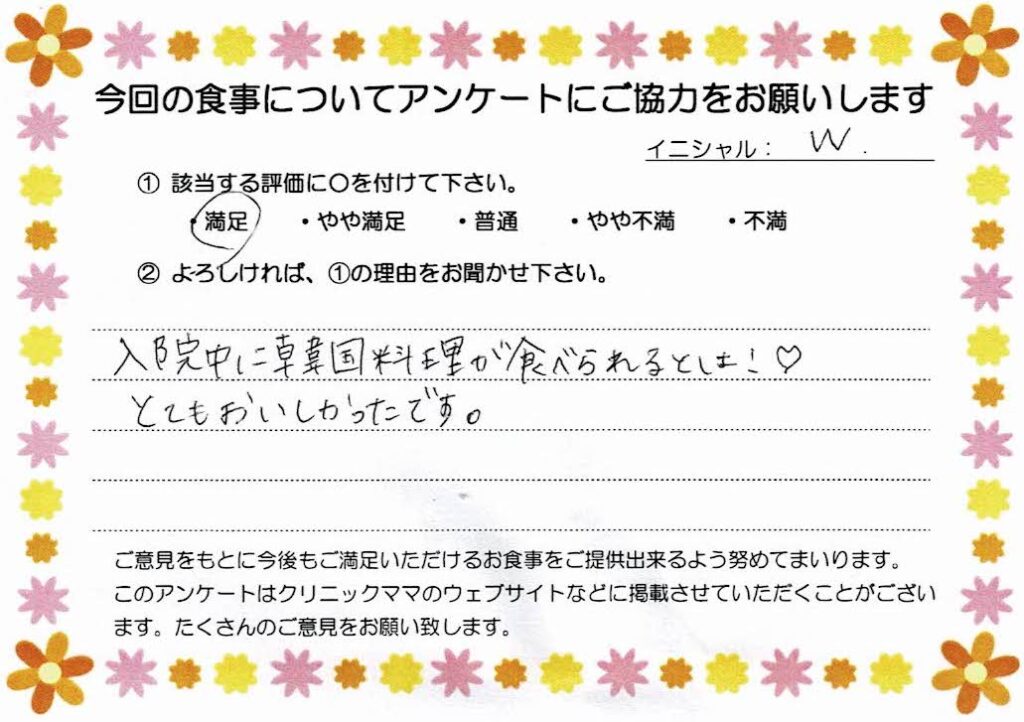 今回の食事についてアンケートにご協力をお願いします
イニシャル： W.
① 該当する評価に○を付けて下さい。
・満足 ・やや満足 ・普通 ・やや不満 ・不満
② よろしければ、①の理由をお聞かせ下さい。
入院中に韓国料理が食べられるとは！♡
とてもおいしかったです。
ご意見をもとに今後もご満足いただけるお食事をご提供出来るよう努めてまいります。
このアンケートはクリニックママのウェブサイトなどに掲載させていただくことがござい
ます。たくさんのご意見をお願い致します。